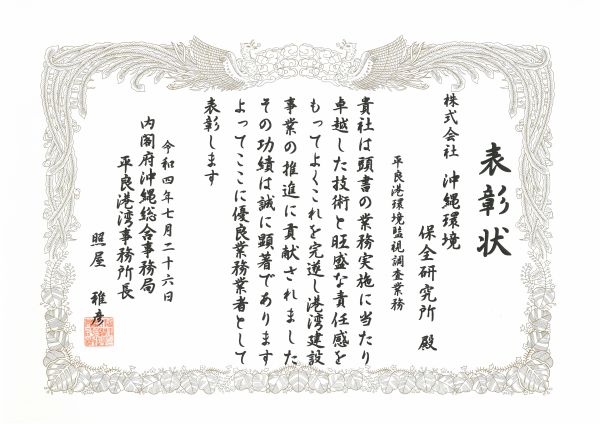 表彰状
株式会社 沖縄環境
保全研究所 殿
平良港環境監視調査業務
貴社は頭書の業務実施に当たり
卓越した技術と旺盛な責任感を
もってよくこれを完遂し港湾建設
事業の推進に貢献されました
その功績は誠に顕著であります
よってここに優良業務業者として
表彰します
令和四年七月二十六日
内閣府沖縄総合事務局
平良港湾事務所長
照屋 雅彦